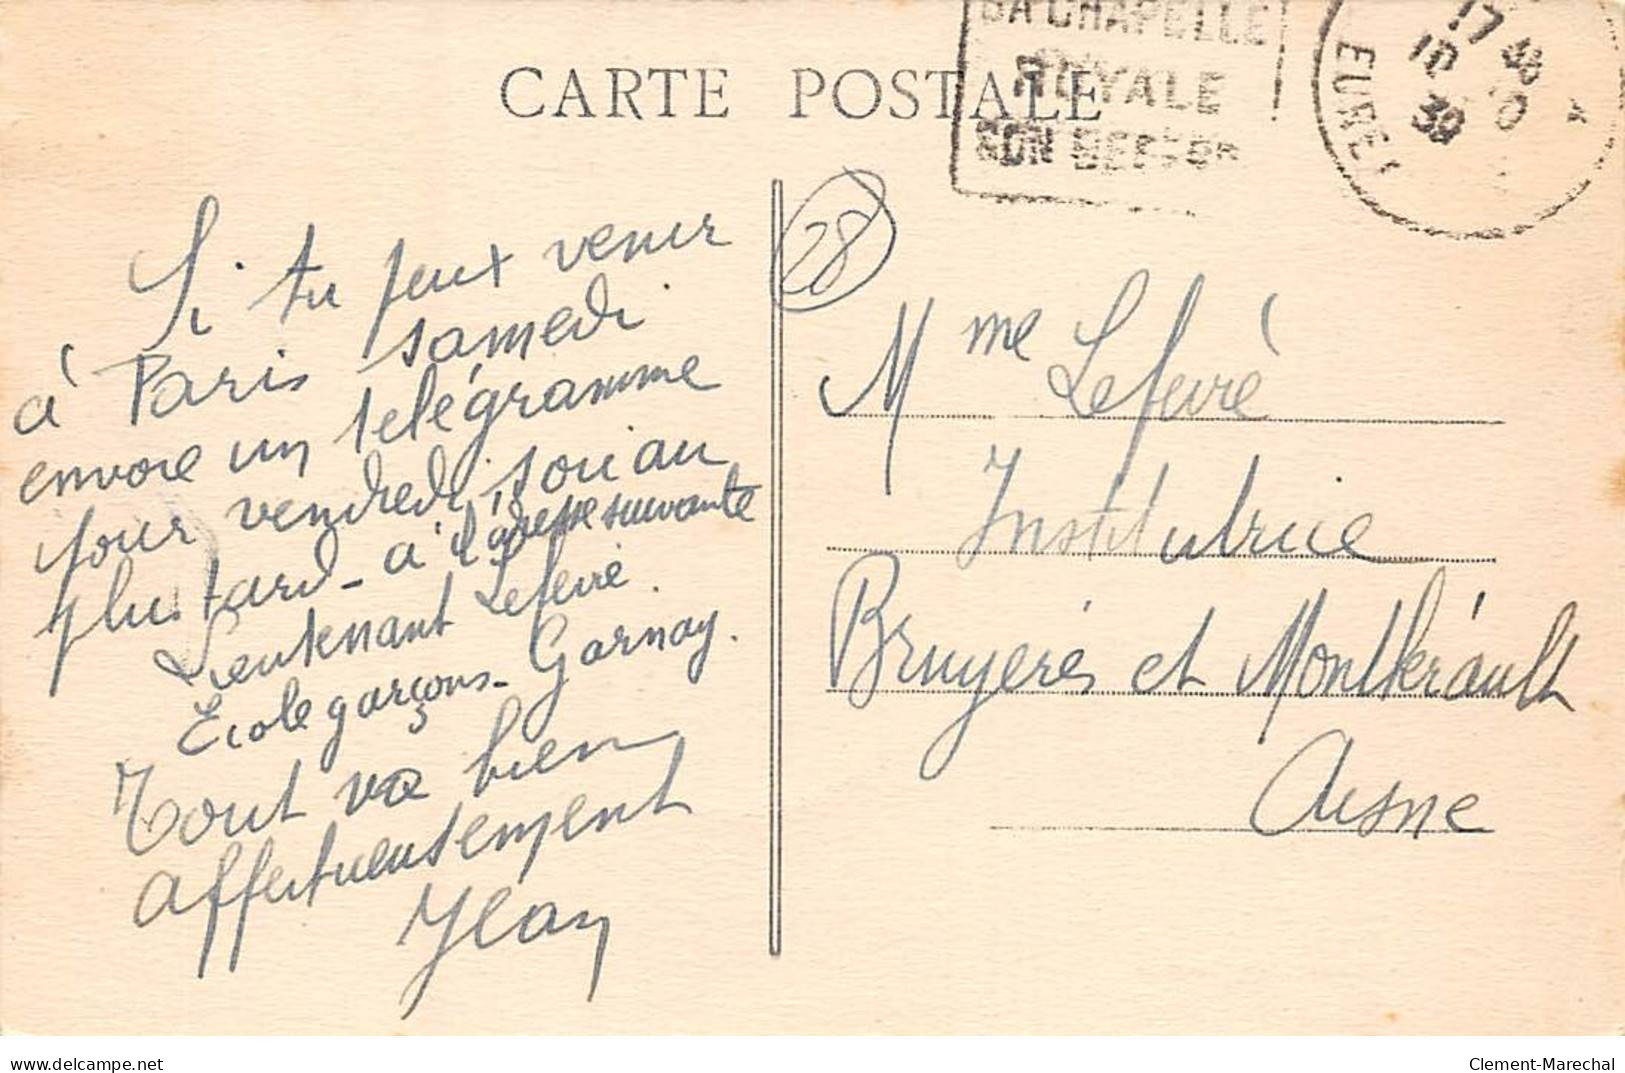 CARTE POSTALE
SA CHAPELLE
ROYALE
SON BEFFROI
17
10
39
EURE
28
Si tu peux venir
à Paris samedi
envoie un télégramme
pour vendredi soir au
plus tard - à l'adresse suivante
Lieutenant Lefèvre.
École garçons - Garnay.
Tout va bien
Affectueusement
Jean
Mme Lefèvre
Institutrice
Bruyères et Montbérault
Aisne
delcampe.net
Clement-Marechal